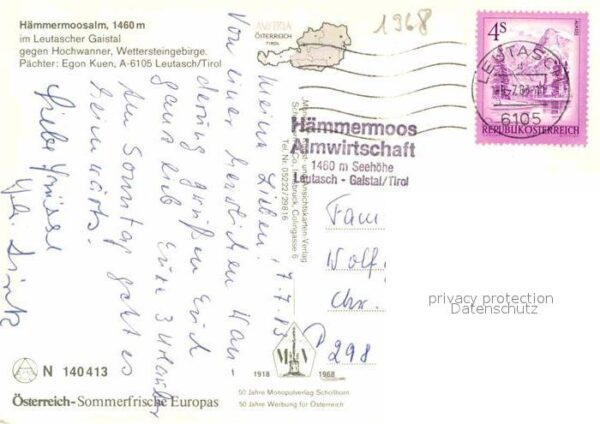 Hämmermoosalm, 1460 m
im Leutascher Gaistal
gegen Hochwanner, Wettersteingebirge.
Pächter: Egon Kuen, A-6105 Leutasch/Tirol
AUSTRIA
ÖSTERREICH
TIROL
1968
4S
REPUBLIK ÖSTERREICH
LEUTASCH
6105
Hämmermoos
Almwirtschaft
1460 m Seehöhe
Leutasch - Gaistal/Tirol
Meine Lieben! 7.7.83
Von einer herrlichen Wan-
derung grüßen Euch
ganz lieb Eure 3 Urlauber
Am Sonntag geht es
heimwärts.
Liebe Grüsse
Fam
Wolf
Chr.
P 298
privacy protection
Datenschutz
Tel. Nr. 05222/29816
1918 1968
50 Jahre Monopolverlag Schöllhorn
50 Jahre Werbung für Österreich
N 140 413
Österreich-Sommerfrische Europas